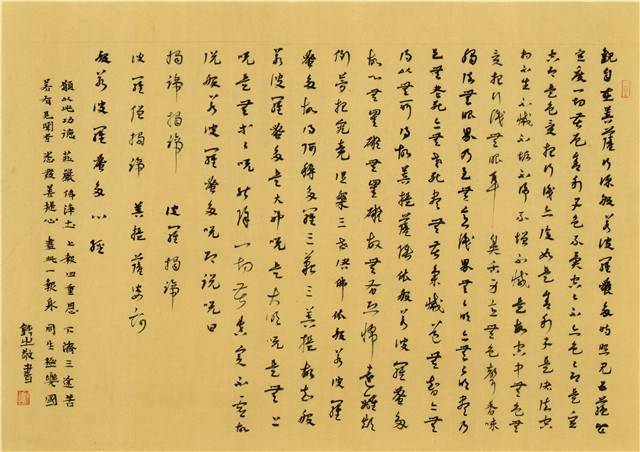 觀自在菩薩行深般若波羅蜜多時照見五蘊皆
空度一切苦厄舍利子色不異空空不異色色即是空
空即是色受想行識亦復如是舍利子是諸法空
相不生不滅不垢不淨不增不減是故空中無色無
受想行識無眼耳鼻舌身意無色聲香味
觸法無眼界乃至無意識界無無明亦無無明盡乃
至無老死亦無老死盡無苦集滅道無智亦無
得以無所得故菩提薩埵依般若波羅蜜多
故心無罣礙無罣礙故無有恐怖遠離顛
倒夢想究竟涅槃三世諸佛依般若波羅
蜜多故得阿耨多羅三藐三菩提故知般
若波羅蜜多是大神咒是大明咒是無上
咒是無等等咒能除一切苦真實不虛故
說般若波羅蜜多咒即說咒曰
揭諦揭諦 波羅揭諦
波羅僧揭諦 菩提薩婆訶
般若波羅蜜多心經
願以此功德 莊嚴佛淨土 上報四重恩 下濟三途苦
若有見聞者 悉發菩提心 盡此一報身 同生極樂國
之敬書